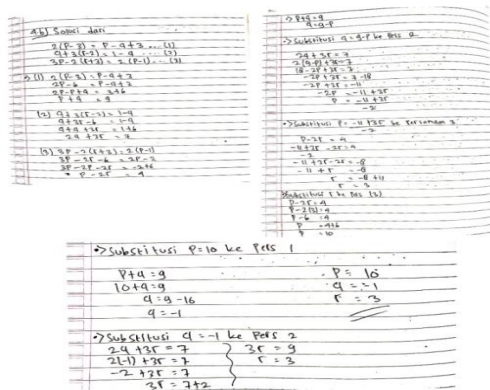 4.b) Solusi dari
2(P-3) = P-q+3 ... (1)
q+3(r-2) = 1-q ... (2)
3P-2(r+3) = 2(P-1) ... (3)
(1) 2(P-3) = P-q+3
2P-6 = P-q+3
2P-P+q = 3+6
P+q = 9
(2) q+3(r-2) = 1-q
q+3r-6 = 1-q
q+q+3r = 1+6
2q+3r = 7
(3) 3P-2(r+3) = 2(P-1)
3P-2r-6 = 2P-2
3P-2P-2r = -2+6
P-2r = 4
P+q=9
q=9-P
•> Substitusi q=9-P ke Pers 2
2q+3r=7
2(9-P)+3r=7
18-2P+3r=7
-2P+3r=7-18
-2P+3r=-11
-2P = -11+3r
P = -11+3r
-2
•> Substitusi P = -11+3r ke Persamaan 3
-2
P-2r = 4
-11+3r-2r=4
-2
-11+3r-2r=-8
-11+r = -8
r = -8+11
r = 3
Substitusi r ke Pers (3)
P-2r=4
P-2(3)=4
P-6=4
P =4+6
P =10
•> Substitusi P=10 ke Pers 1
P+q=9
10+q=9
q=9-10
q=-1
P= 10
q=-1
r= 3
•> Substitusi q=-1 ke Pers 2
2q+3r=7
2(-1)+3r=7
-2+3r=7
3r=7+2
3r=9
r=3